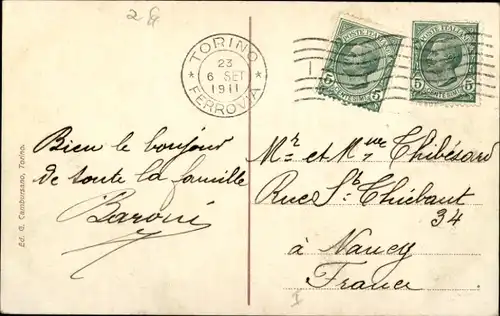 TORINO
23
6 SET
1911
* FERROVIA *
POSTE ITALIANE
5
CENTESIMI
POSTE ITALIANE
5
CENTESIMI
Ed. G. Cambursano, Torino.
Bien le bonjour
de toute la famille
Baroni
Mr et Mme Thibésard
Rue St Thiébaut
34
à Nancy
France